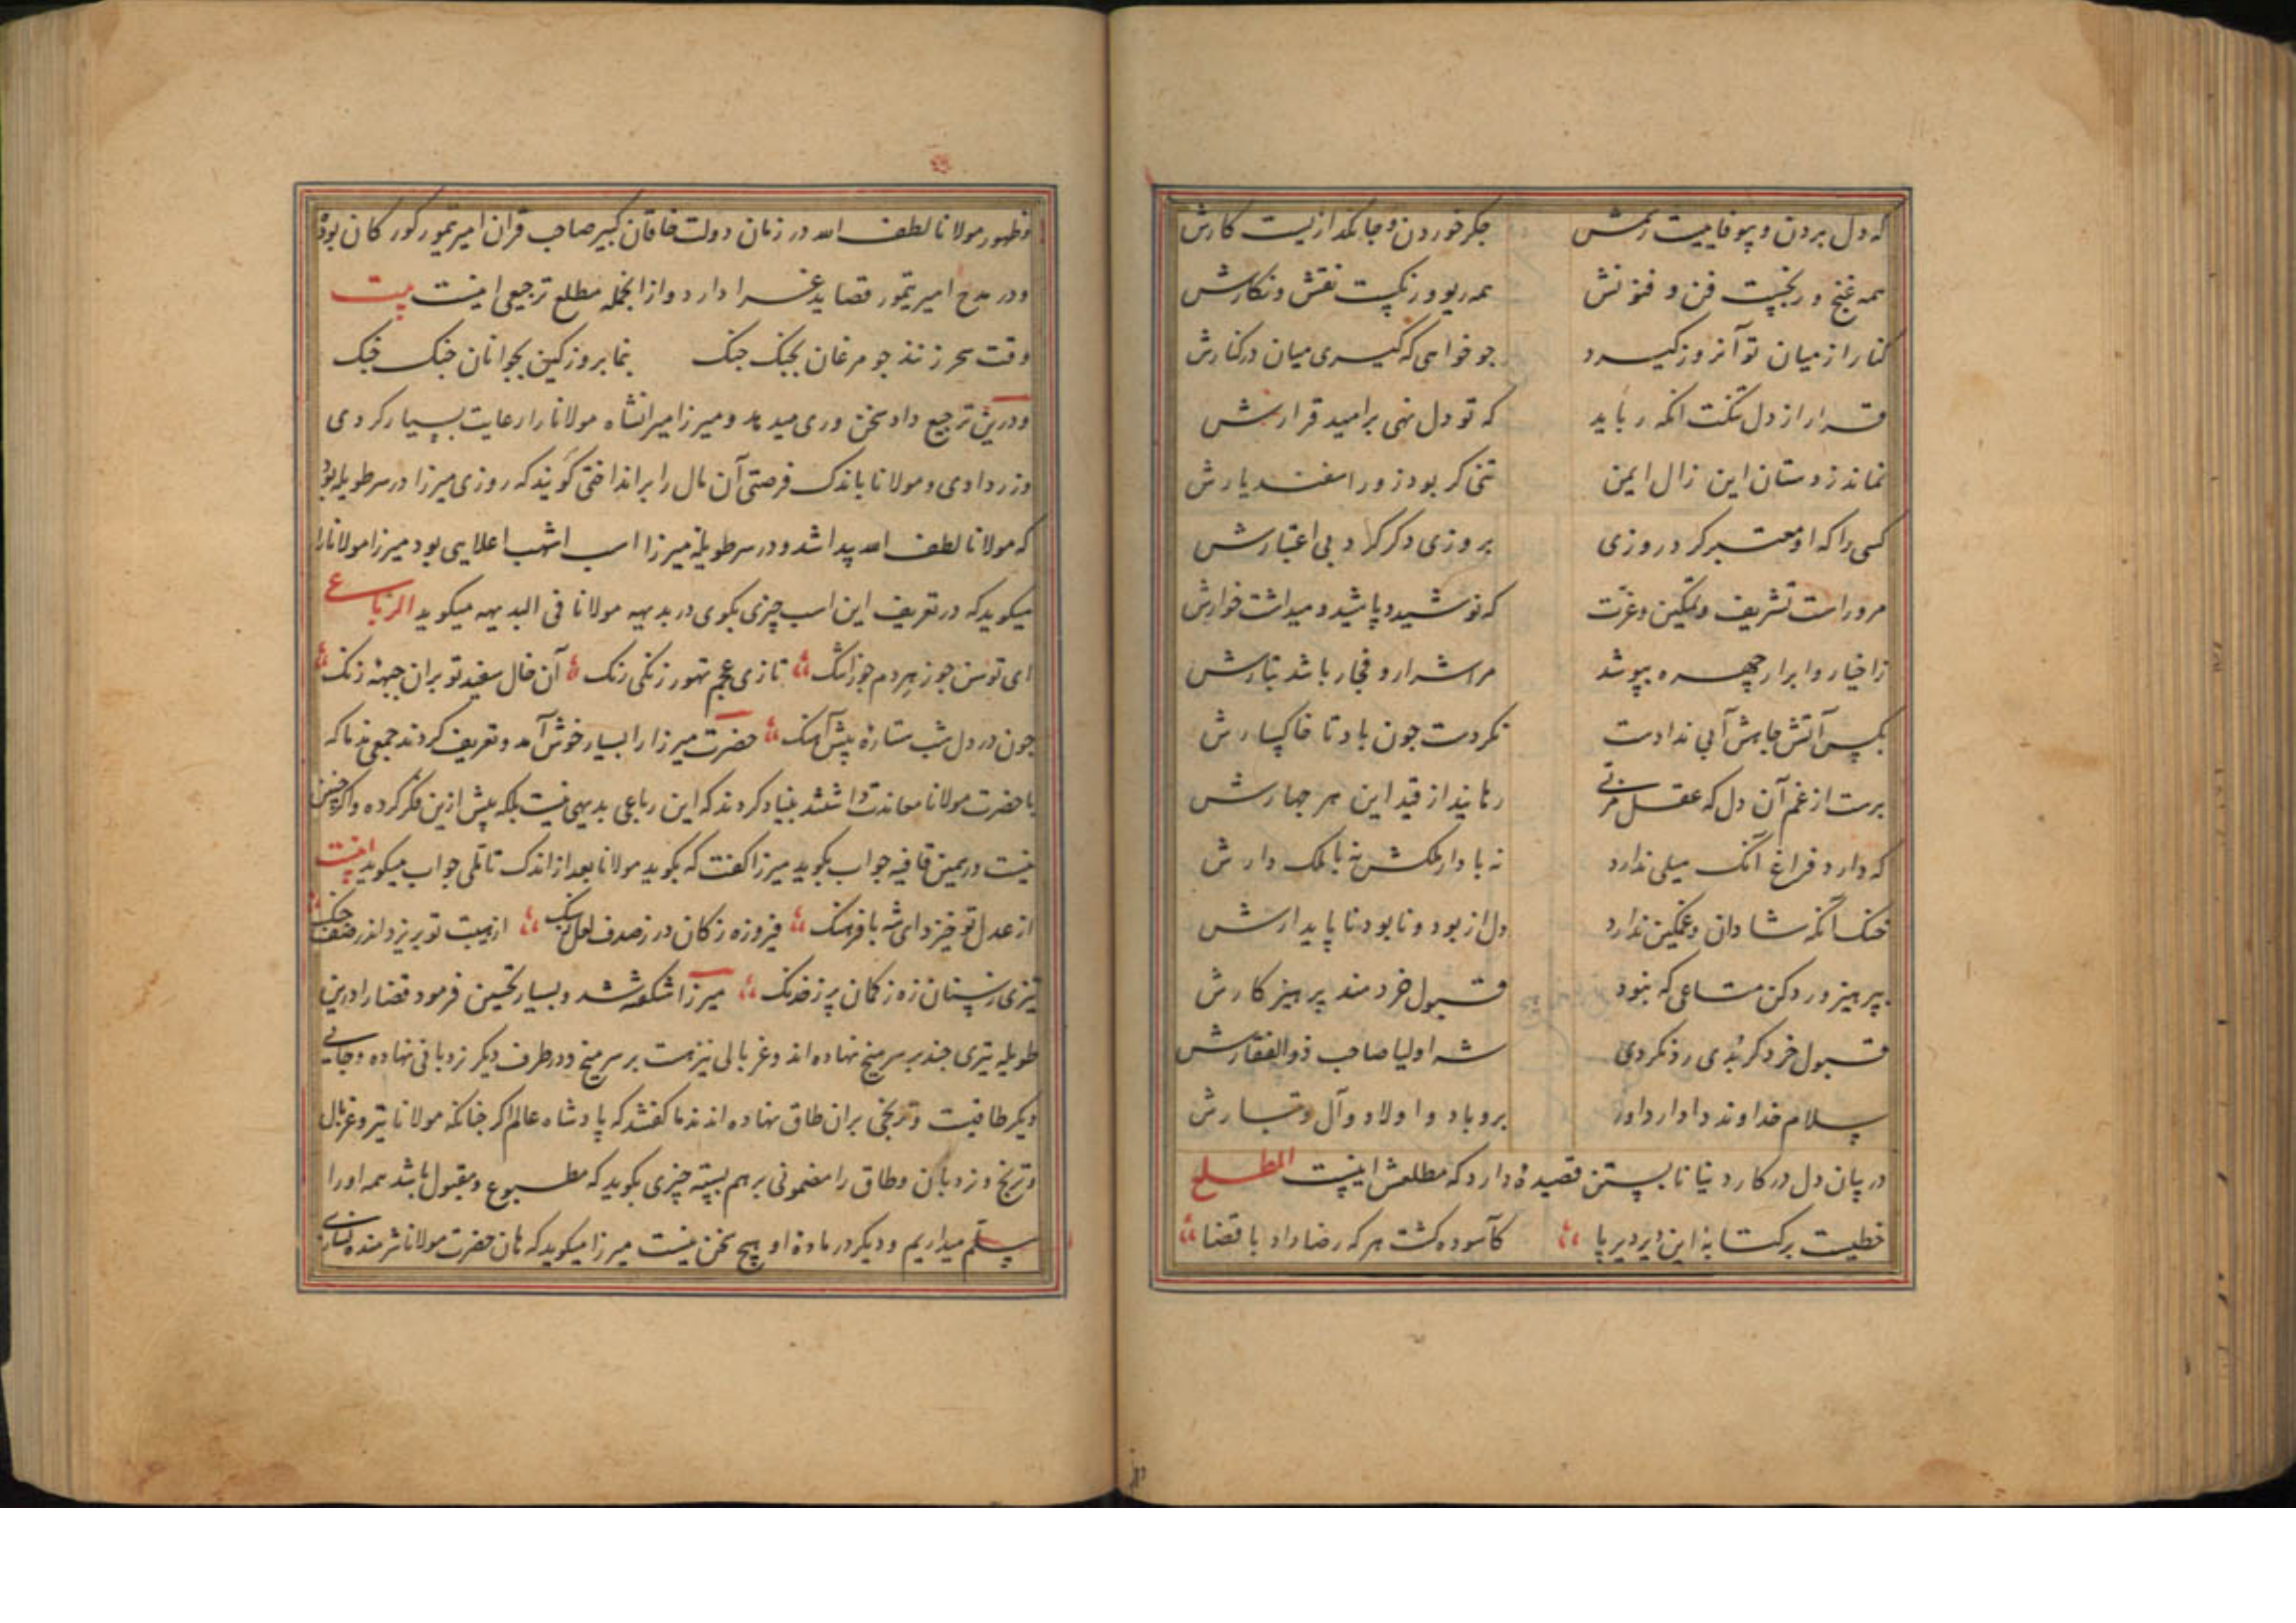 که دل بردن و بیوفاییست رسمش جکر خوردن و جانکدازیست کارش
همه غنج و رنجیست فن و فنونش همه ریو و رنکیست نقش و نکارش
کنار از میان تو آنروز کیرد جو خواهی که کیری میان در کنارش
قرار از دل تنکت انکه رباید که تو دل نهی بر امید قرارش
نماند ز دستان این زال ایمن تنی کر بود زور اسفندیارش
کسی را که او معتبر کرد روزی بروزی دکر کرد بی اعتبارش
مرو راست تشریف و تمکین و عزت که نوشید و پاشید و میداشت خوارش
ز اخیار و ابرار چهره بپوشد مر اشرار و فجار باشد نثارش
بکس آتش جاهش آبی ندادست نکردست جون باد تا خاکسارش
برست از غم آن دل که عقل مربی رهانید از قید این هر جهارش
که دارد فراغ آنک میلی ندارد نه با دار ملکش نه با ملک دارش
خنک آنکه شادان و غمکین ندارد دل از بود و نابود ناپایدارش
بپرهیز و رد کن متاعی که نبود قبول خردمند پرهیزکارش
قبول خرد کر بدی رد نکردی شه اولیا صاحب ذوالفقارش
سلام خداوند دادار داور برو باد و اولاد و آل و تبارش
در بیان دل در کار دنیا نابستن قصیدهٔ دارد که مطلعش اینست المطلع
خطیست بر کتابهٔ این دیر دیرپا کآسوده کشت هر که رضا داد با قضا
وظهور مولانا لطف الله در زمان دولت خاقان کبیر صاحب قران امیر تیمور کورکان بود
ودر مدح امیر تیمور قصاید غرا دارد و از انجمله مطلع ترجیعی اینست بیت
وقت سحر زنند جو مرغان بجنک جنک بنما بروز کین بجوانان خنک خنک
ودرین ترجیع داد سخن وری میدهد و میرزا میرانشاه مولانا را رعایت بسیار کردی
وزر دادی و مولانا باندک فرصتی آن مال را برانداختی کویند که روزی میرزا در سر طویله بود
که مولانا لطف الله پیدا شد و در سر طویلهٔ میرزا اسب اشهب اعلایی بود میرزا مولانا را
میکوید که در تعریف این اسب چیزی بکوی در بدیهه مولانا فی البدیهه میکوید الرباعی
ای توسن جوزهردم جوزا تنک تازی عجم تهور زنکی رنک آن خال سفید تو بران جبهه زنک
جون در دل شب ستارهٔ پیش آهنک حضرت میرزا را بسیار خوش آمد و تعریف کردند جمعی ندما که
با حضرت مولانا معاندت داشتند بنیاد کردند که این رباعی بدیهی نیست بلکه پیش ازین فکر کرده و اکر چنین
نیست در همین قافیه جواب بکوید میرزا کفت که بکوید مولانا بعد از اندک تاملی جواب میکوید اینست
از عدل تو خیزد ای شه با فرهنک فیروزه ز کان در ز صدف لعل ز سنک از هیبت تو بریزد اندر صف جنک
تیزی ز سنان زه ز کمان پر ز خدنک میرزا شکفته شد و بسیار تحسین فرمود قضا را درین
طویله تیری جند بر سر میخ نهاده اند و غربالی نیز هست بر سر میخ و در طرف دیکر نردبانی نهاده و جایی
دیکر طاقیست و ترنجی بران طاق نهاده اند ندما کفتند که پادشاه عالم اکر جنانکه مولانا تیر و غربال
وترنج و نردبان و طاق را مضمونی بر هم بسته چیزی بکوید که مطبوع و مقبول باشد همه او را
مسلم میداریم و دیکر در مادهٔ او هیچ سخن نیست میرزا میکوید که هان حضرت مولانا شرمنده نسازی